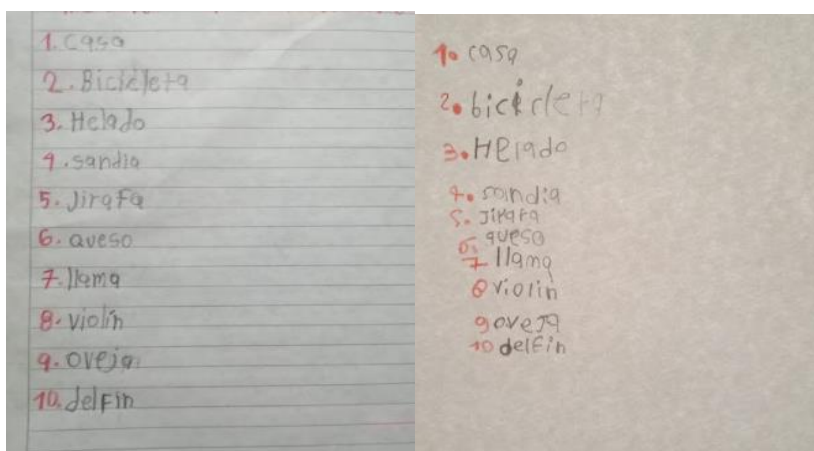 1. Casa
2. Bicicleta
3. Helado
4. sandia
5. Jirafa
6. queso
7. llama
8. violin
9. oveja
10. delfin
1. casa
2. bicicleta
3. Helado
4. sandia
5. Jirafa
6. queso
7 llama
8 violin
9 oveja
10 delfin